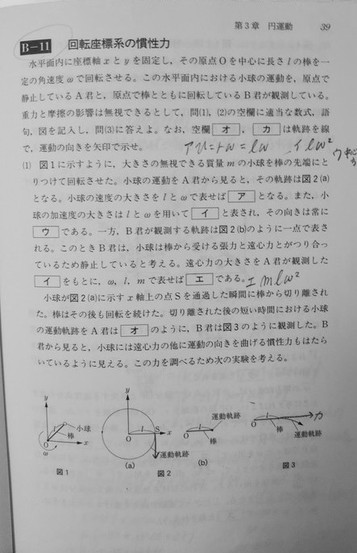 第3章 円運動 39
B-11 回転座標系の慣性力
水平面内に座標軸xとyを固定し，その原点Oを中心に長さlの棒を一
定の角速度ωで回転させる。この水平面内における小球の運動を，原点で
静止しているA君と，原点で棒とともに回転しているB君が観測している。
重力と摩擦の影響は無視できるとして，問(1)，(2)の空欄に適当な数式，語
句，図を記入し，問(3)に答えよ。なお，空欄 オ ， カ は軌跡を線
で，運動の向きを矢印で示せ。
ω = lω イ lω²
(1) 図1に示すように，大きさの無視できる質量mの小球を棒の先端にと
りつけて回転させた。小球の運動をA君から見ると，その軌跡は図2(a)
となる。小球の速度の大きさをlとωで表せば ア となる。また，小
球の加速度の大きさはlとωを用いて イ と表され，その向きは常に
ウ である。一方，B君が観測する軌跡は図2(b)のように一点で表さ
れる。このときB君は，小球は棒から受ける張力と遠心力とがつり合っ
ているため静止していると考える。遠心力の大きさをA君が観測した
イ をもとに，ω，l，mで表せば エ である。エ mlω²
小球が図2(a)に示すx軸上の点Sを通過した瞬間に棒から切り離され
た。棒はその後も回転を続けた。切り離された後の短い時間における小球
の運動軌跡をA君は オ のように，B君は図3のように観測した。B
君から見ると，小球には遠心力の他に運動の向きを曲げる慣性力もはたら
いているように見える。この力を調べるため次の実験を考える。
y 小球 l 棒 O x ω
図1
y l S O x 運動軌跡
(a)
運動軌跡 l O 棒
(b)
図2
l O 運動軌跡 棒
図3